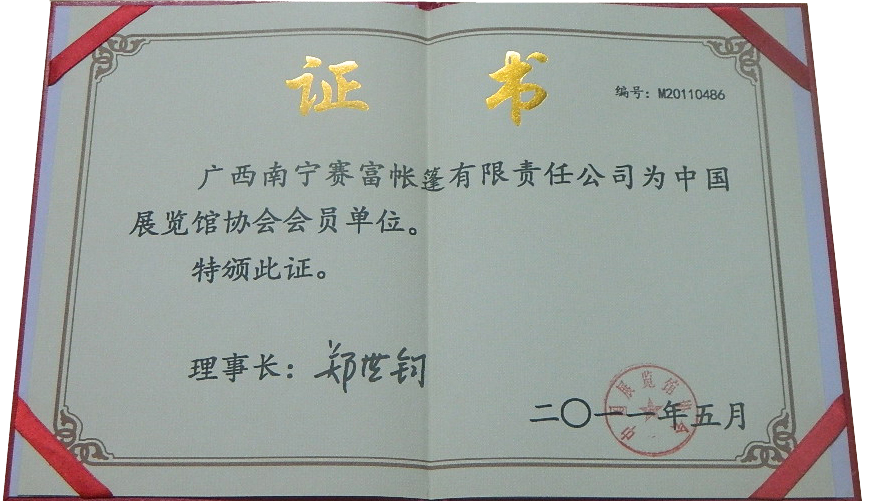 证书
编号：M20110486
广西南宁赛富帐篷有限责任公司为中国
展览馆协会会员单位。
特颁此证。
理事长：郑世钧
二〇一一年五月
中国展览馆协会